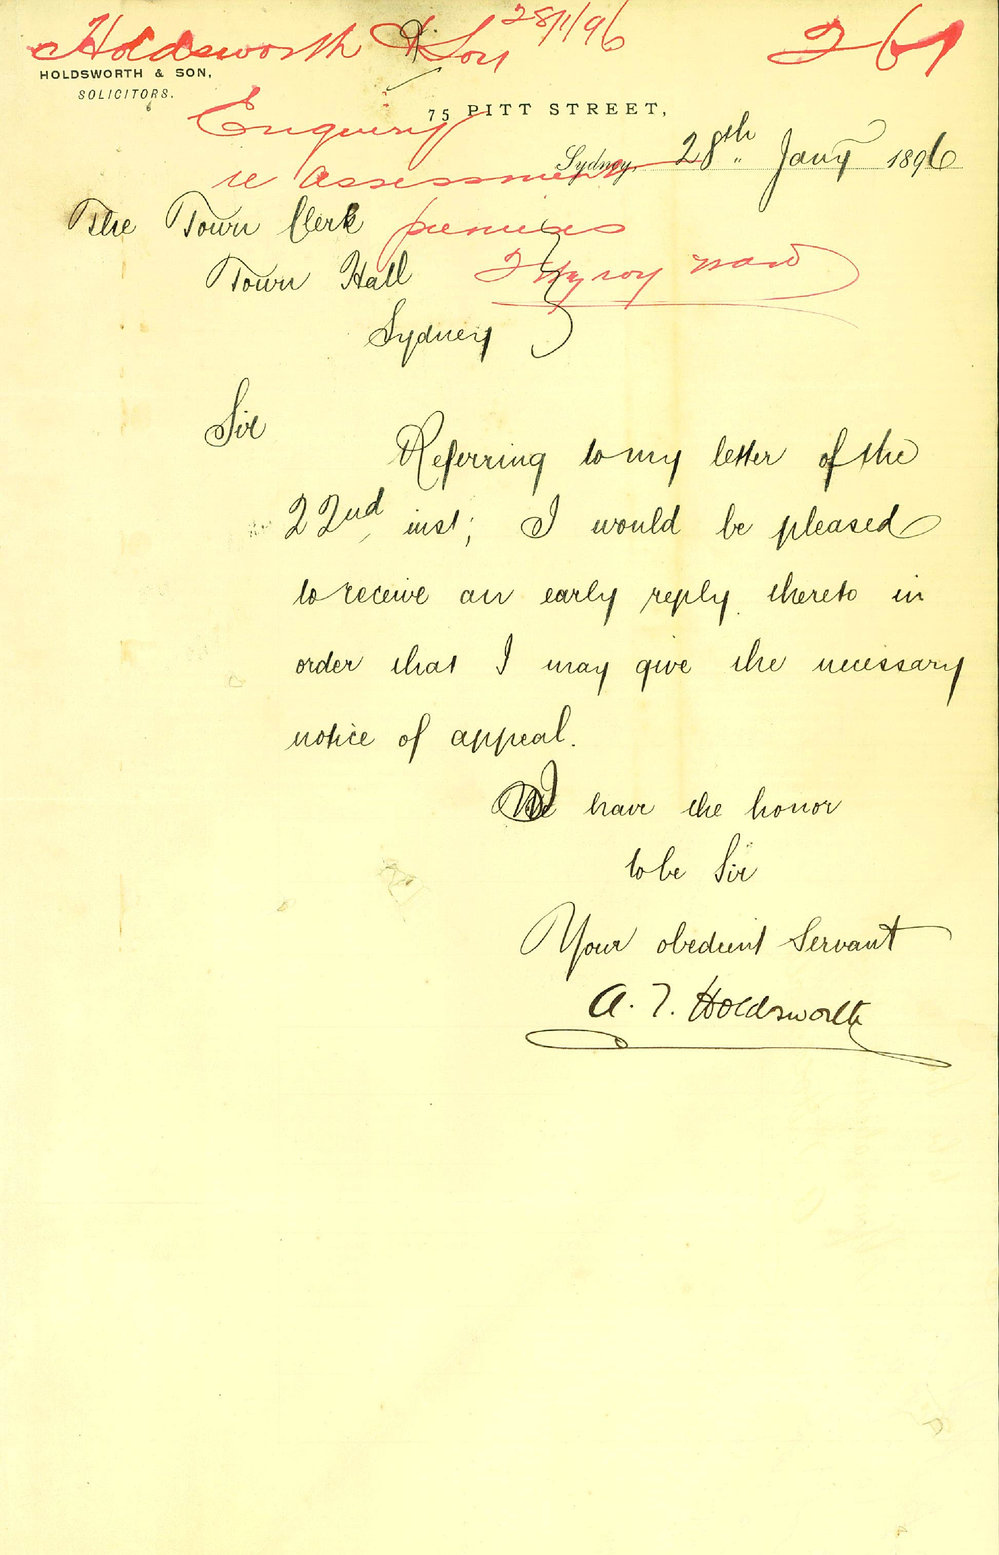 Holdsworth & Son 28/1/96 261
HOLDSWORTH & SON,
SOLICITORS.
75 PITT STREET,
Enquiry
Sydney, 28th Jany 1896
re assessment
The Town Clerk
premises
Town Hall
Fitzroy Ward
Sydney
Sir
Referring to my letter of the
22nd inst; I would be pleased
to receive an early reply thereto in
order that I may give the necessary
notice of appeal.
I have the honor
to be Sir
Your obedient Servant
A. T. Holdsworth